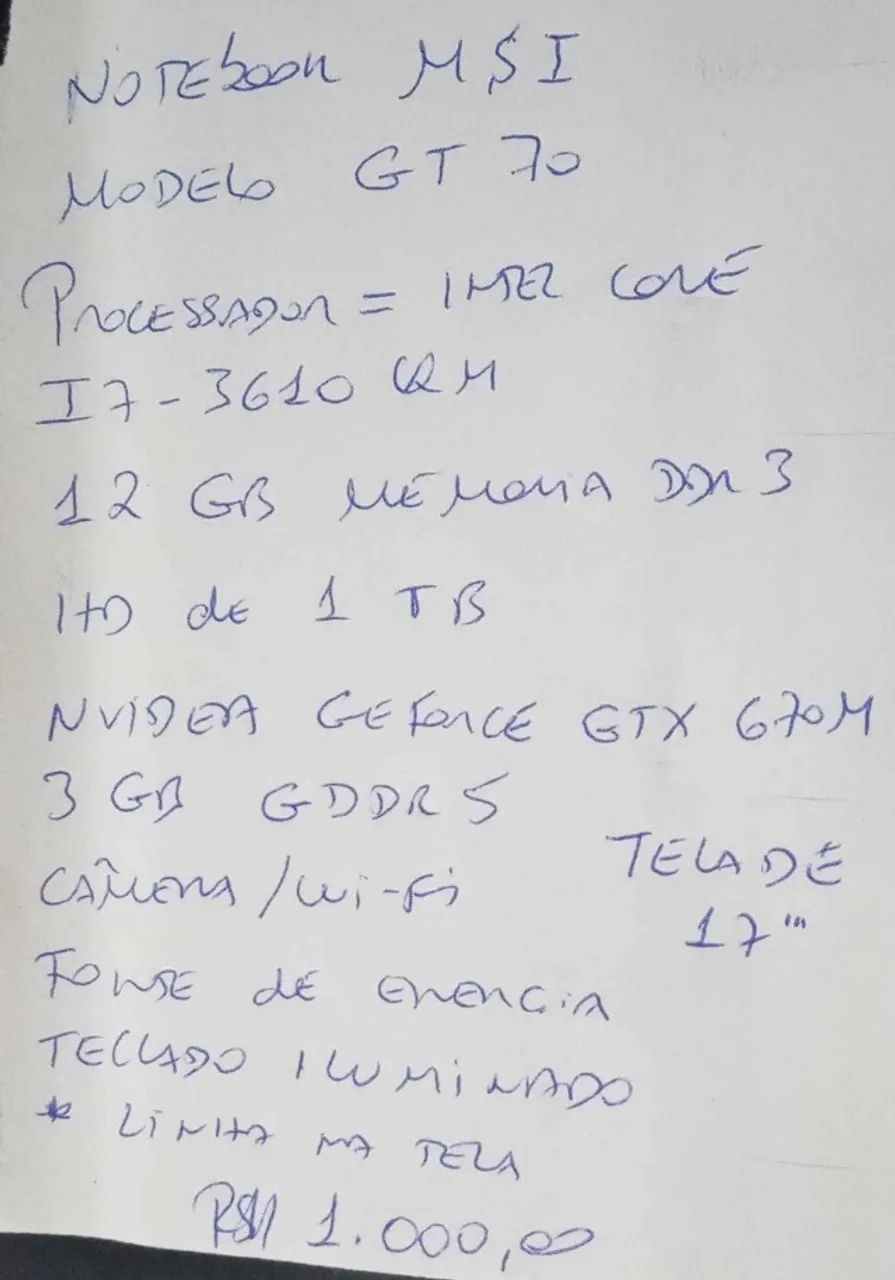 NOTEBOOK M$I
MODELO GT 70
PROCESSADOR = INTEL CORE
I7-3610 QM
12 GB MEMORIA DDR 3
HD de 1 TB
NVIDEA GEFORCE GTX 670M
3 GB GDDR 5
CÂMERA / Wi-Fi
TELA DE
17"'
FONTE DE ENERGIA
TECLADO ILUMINADO
* LINHA NA TELA
R$ 1.000,00